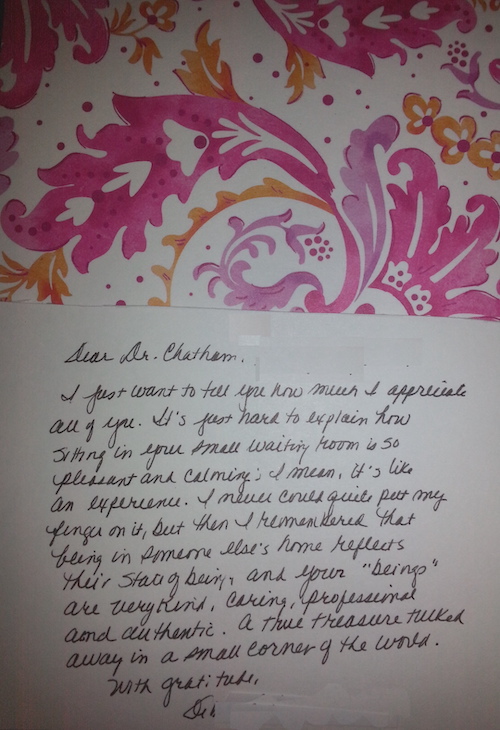 Dear Dr. Chatham,
I just want to tell you how much I appreciate
all of you. It's just hard to explain how
sitting in your small waiting room is so
pleasant and calming; I mean, it's like
an experience. I never could quite put my
finger on it, but then I remembered that
being in someone else's home reflects
their state of being, and your "beings"
are very kind, caring, professional
aond authentic. A true treasure tucked
away in a small corner of the world.
With gratitude,